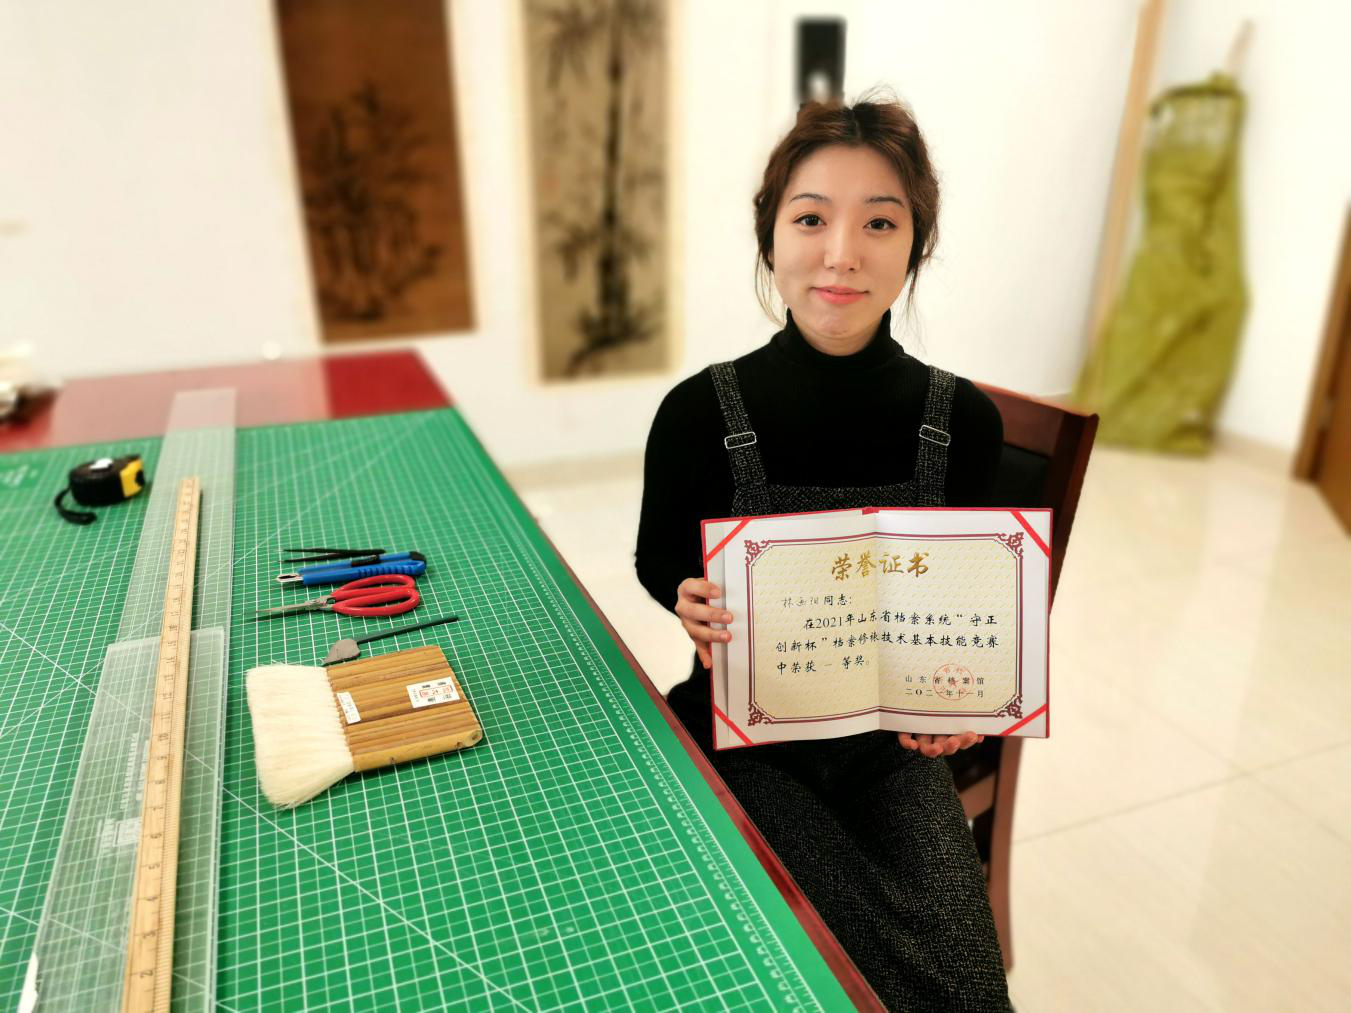 荣誉证书
同志：
在2021年山东省档案系统“守正
创新杯”档案修裱技术基本技能竞赛
中荣获 一 等奖。
山东省档案馆
二〇二一年十一月